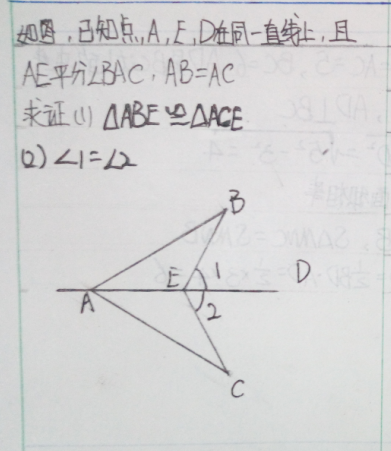 如图,已知点,A,E,D在同一直线上,且
AE平分∠BAC,AB=AC
求证(1) △ABE≌△ACE
(2) ∠1=∠2
B
E
1
D
A
2
C